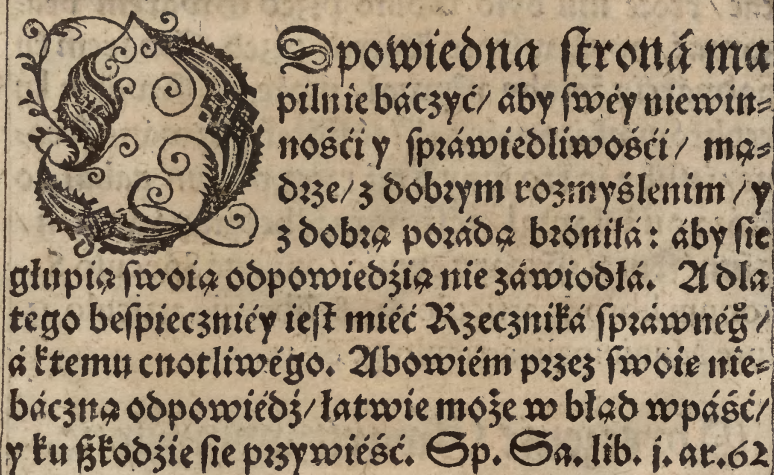 ODpowiedna ſtroná ma
pilnie báczyć/ áby ſwéy niewin⸗
nośći y ſpráwiedliwośći/ mą⸗
drze/ z dobrym rozmyślenim/ y
z dobrą porádą bróniłá: áby ſie
głupią ſwoią odpowiedźią nie záwiodłá. A dla
tego beſpieczniéy ieſt miéć Rzeczniká ſpráwnég̊/
á ktemu cnotliwégo. Abowiém przez ſwoie nie⸗
báczną odpowiédź/ łatwie może w błąd wpáść/
y ku ßkodźie ſie przywiéść. Sp. Sa. lib. j. ar. 62